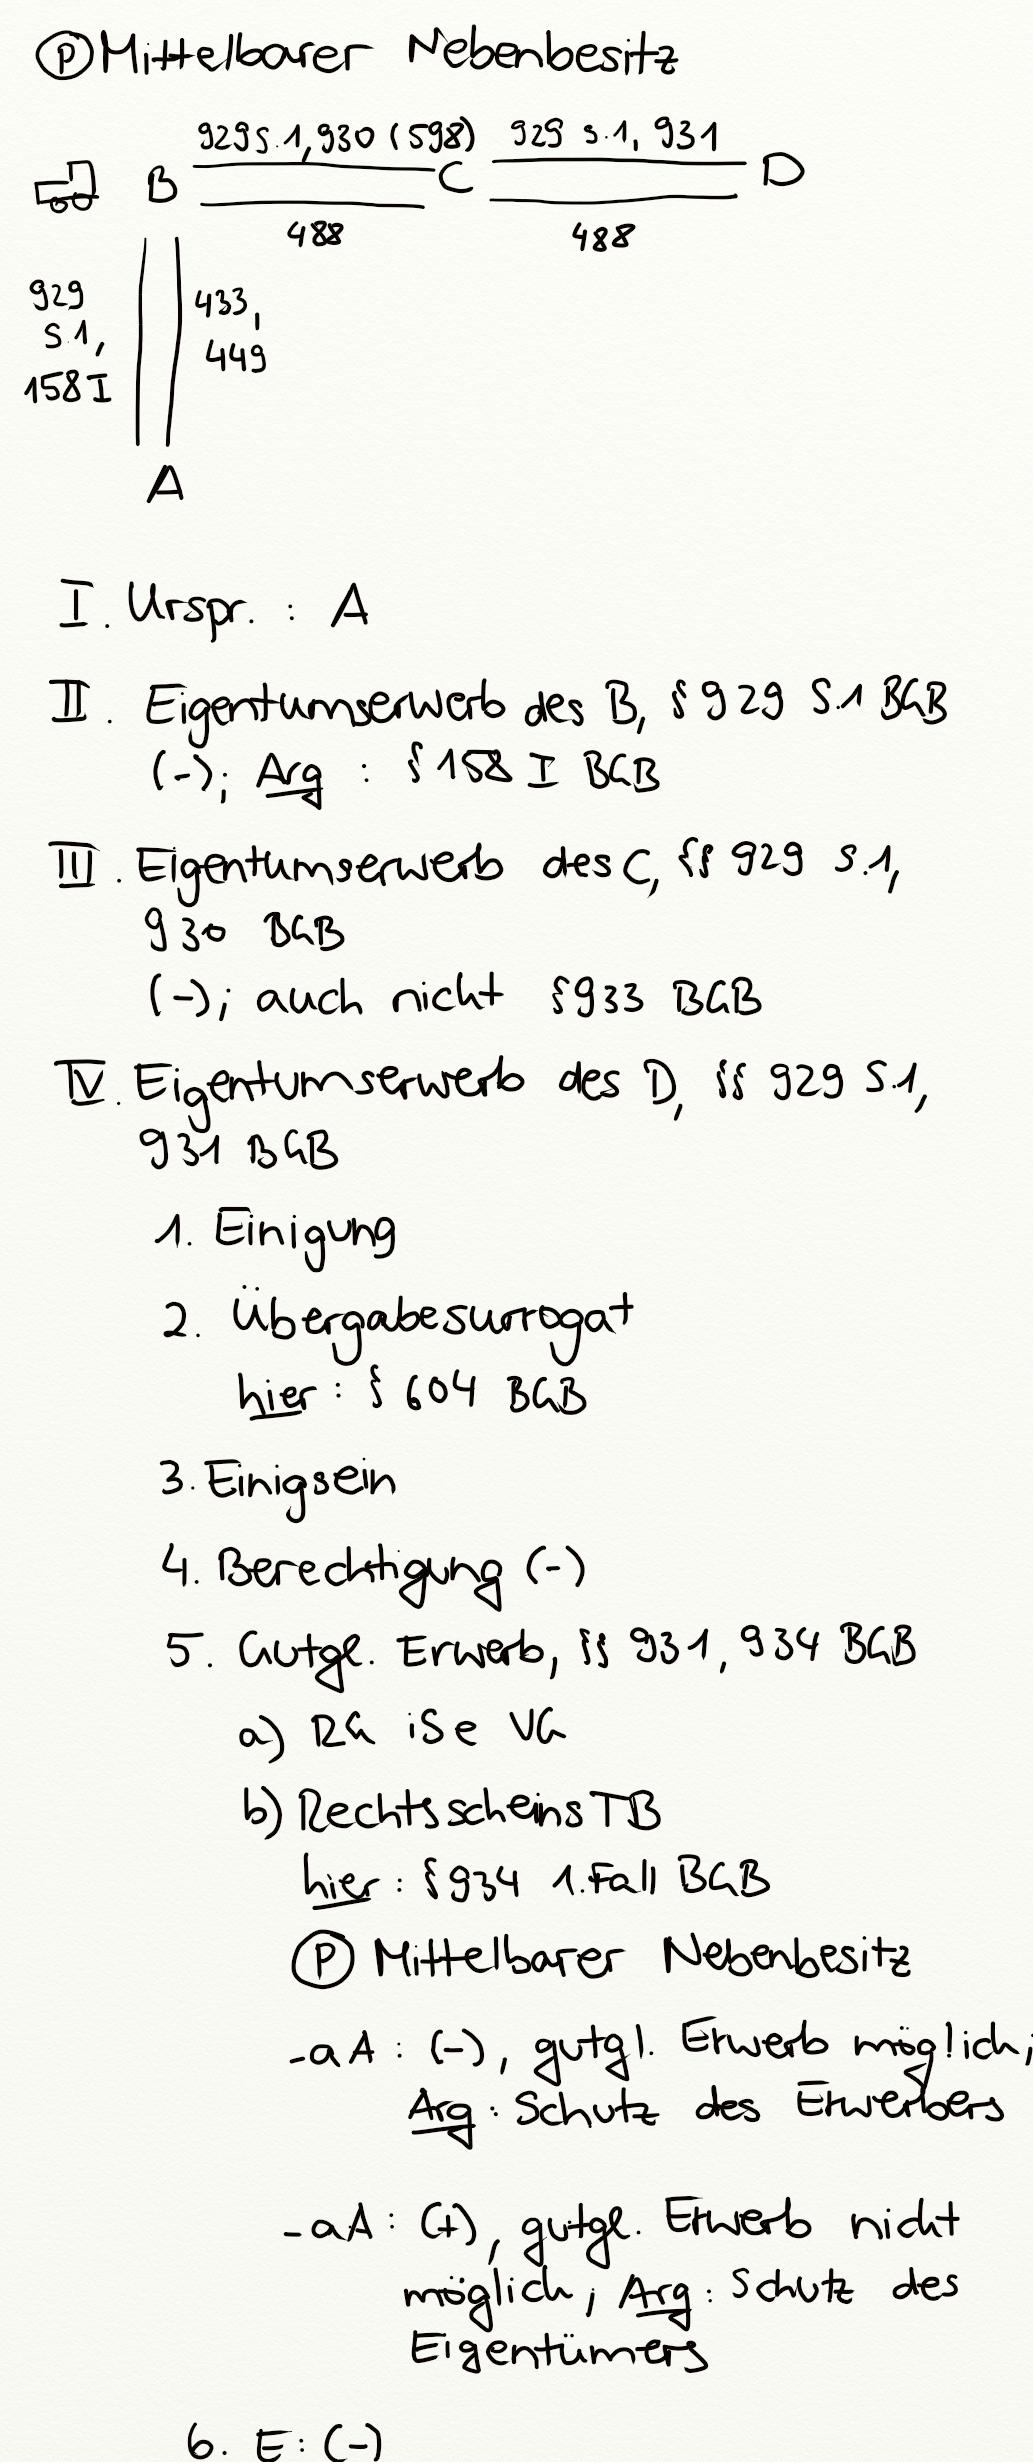 Ⓟ Mittelbarer Nebenbesitz
929 S.1, 930 (598) 929 S.1, 931
B C D
488 488
929
S.1,
158 I
433,
449
A
I. Urspr. : A
II. Eigentumserwerb des B, § 929 S.1 BGB
(-); Arg : § 158 I BGB
III. Eigentumserwerb des C, §§ 929 S.1,
930 BGB
(-); auch nicht § 933 BGB
IV. Eigentumserwerb des D, §§ 929 S.1,
931 BGB
1. Einigung
2. Übergabesurrogat
hier : § 604 BGB
3. Einigsein
4. Berechtigung (-)
5. Gutgl. Erwerb, §§ 931, 934 BGB
a) RG iSe VG
b) RechtsscheinsTB
hier : § 934 1. Fall BGB
Ⓟ Mittelbarer Nebenbesitz
- aA : (-), gutgl. Erwerb möglich;
Arg : Schutz des Erwerbers
- aA : (+), gutgl. Erwerb nicht
möglich; Arg : Schutz des
Eigentümers
6. E : (-)